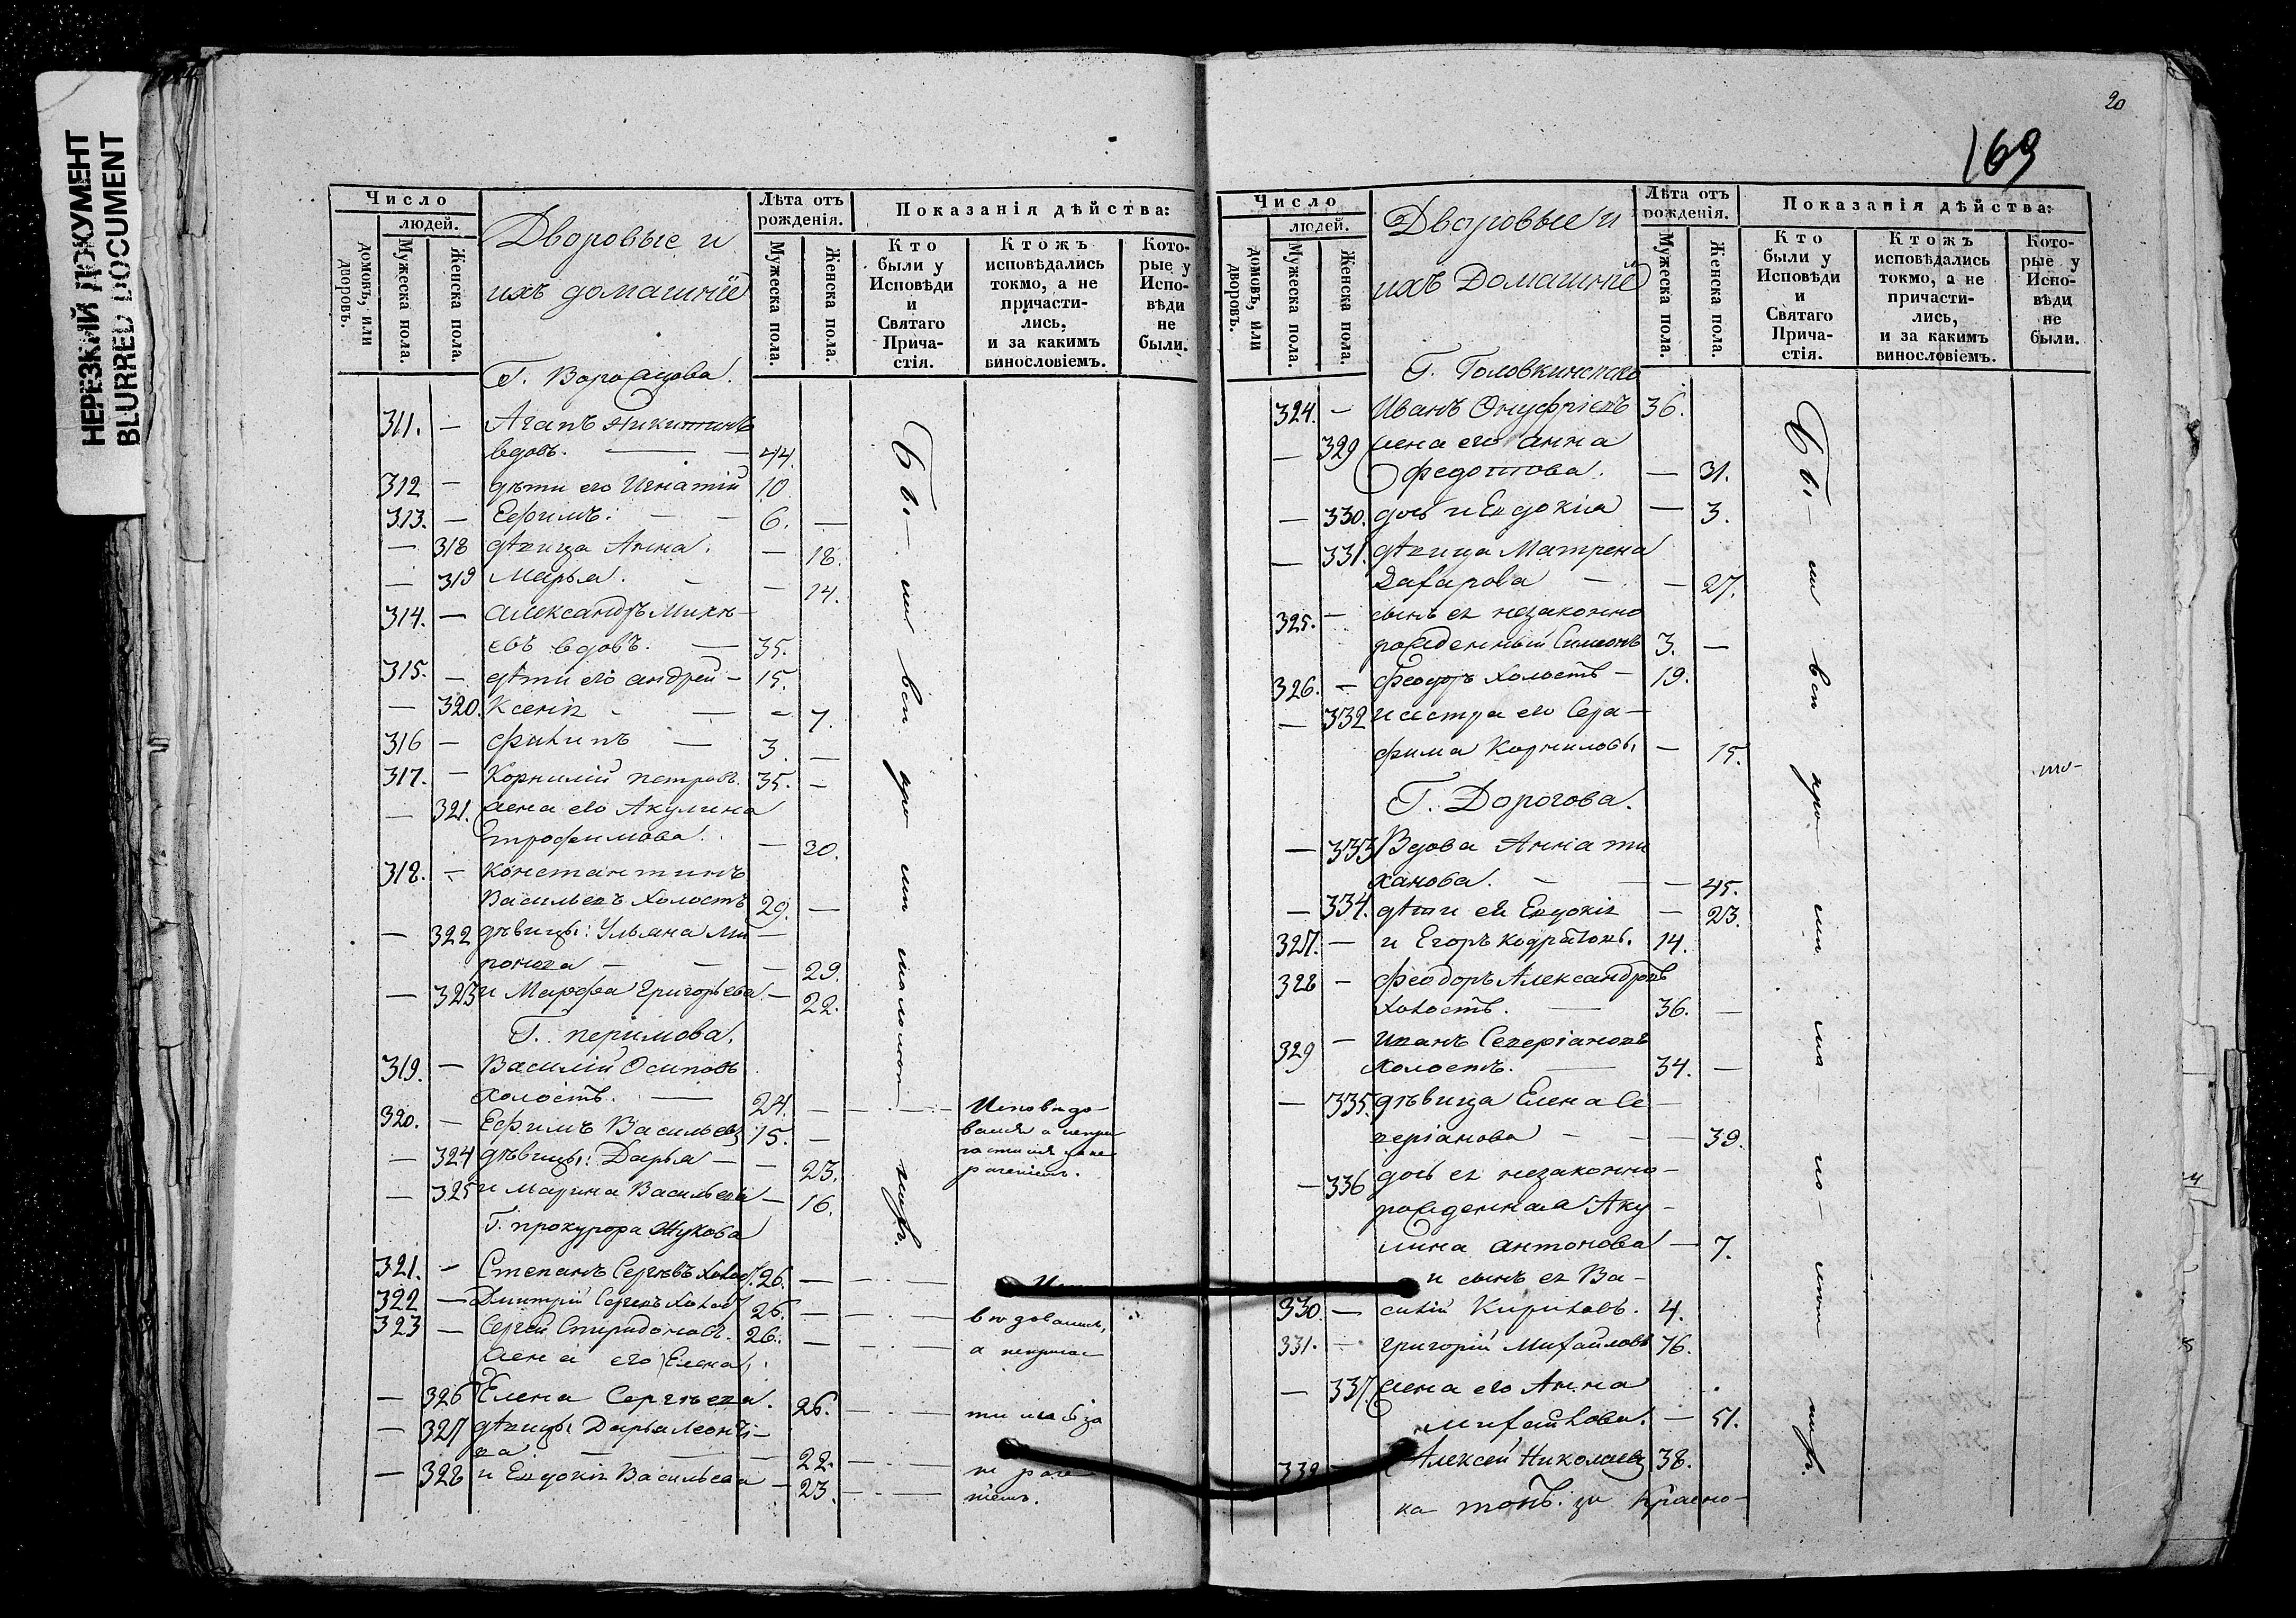 НЕРЕЗКИЙ ДОКУМЕНТ
BLURRED DOCUMENT
Число
людей.
домовъ, или дворовъ.
Мужеска пола.
Женска пола.
Дворовые и
ихъ домашнїе
Лѣта отъ рожденія.
Мужеска пола.
Женска пола.
Показанія дѣйства:
Кто были у Исповѣди и Святаго Прича-стія.
Ктожъ исповѣдались токмо, а не причасти-лись, и за какимъ винословіемъ.
Кото-рые у Испо-вѣди не были.
Г. Воро
311. — Агапъ Никитинъ
вдовъ. — 44.
312 — дѣти его Игнатій 10
313. — Ефимъ. — 6. —
— 318 дѣвица Анна. — 18.
— 319 Марья. — 14.
314. — Александръ Михѣ-
евъ вдовъ. — 35.
315. — дѣти его Андрей — 15.
— 320. Ксенія — 7.
316 — Филипъ — 3. —
317. — Корнилій Петровъ. 35. —
— 321. жена его Акулина
Трофимова. — 30.
318. — Константинъ
Васильевъ холостъ 29. —
— 322 дѣвицы: Ульяна Ми-
ронова — 29.
— 323 и Марфа Григорьева. — 22.
Г. Перимова.
319. — Василій Осиповъ
холостъ. — 24. —
320. — Ефимъ Васильевъ 15. —
— 324 дѣвицы: Дарья — 23.
— 325 и Марина Васильева — 16.
Исповѣдо-
вался а непри
частился за не
раченіемъ.
Г. прокурора Жукова
321. — Степанъ Сергѣевъ холост. 26. —
322 — Дмитрій Сергѣевъ холост 26. —
323 — Сергѣй Спиридоновъ. 26. —
жена его Елена
— 326 Елена Сергѣева. 26.
— 327 дѣвицы Дарья Леонтi-
ва — 22.
— 328 и Евдокія Васильева — 23.
вѣдовались,
а непричас
тились за
не раче
ніемъ.
Были вси протчіи
20
169
Число
людей.
домовъ, или дворовъ.
Мужеска пола.
Женска пола.
Дворовые и
ихъ Домашнїе
Лѣта отъ рожденія.
Мужеска пола.
Женска пола.
Показанія дѣйства:
Кто были у Исповѣди и Святаго Прича-стія.
Ктожъ исповѣдались токмо, а не причасти-лись, и за какимъ винословіемъ.
Кото-рые у Испо-вѣди не были.
Г. Головкинскаго
324. — Иванъ Онуфріевъ 36.
— 329 жена его Анна
Федотова. — 31.
— 330. дочь и Евдокіа — 3.
— 331. дѣвица Матрена
Захарова — 27.
325. — сынъ ея незаконно
рожденный Симеонъ 3. —
326. — Феодоръ холостъ — 19.
— 332 и сестра его Сера-
фима Корниловы — 15.
Г. Дорогова.
— 333 Вдова Анна Ти
ханова. — 45.
— 334. дѣти ей Евдокія — 23.
327. — и Егоръ Кодратовы. 14.
328 — Феодоръ Александровъ
холостъ. — 36. —
329 — Иванъ Северіановъ
холостъ. — 34. —
— 335. дѣвица Елена Се-
веріанова — 39.
— 336 дочь ея незаконно-
рожденная Аку-
лина Антонова — 7.
и сынъ ея Ва-
330. — силій Кириловъ. 4.
331. — Григорій Михайловъ 76.
— 337. жена его Анна
Михайлова. — 51.
332 — Алексей Николаевъ 38.
Были вси